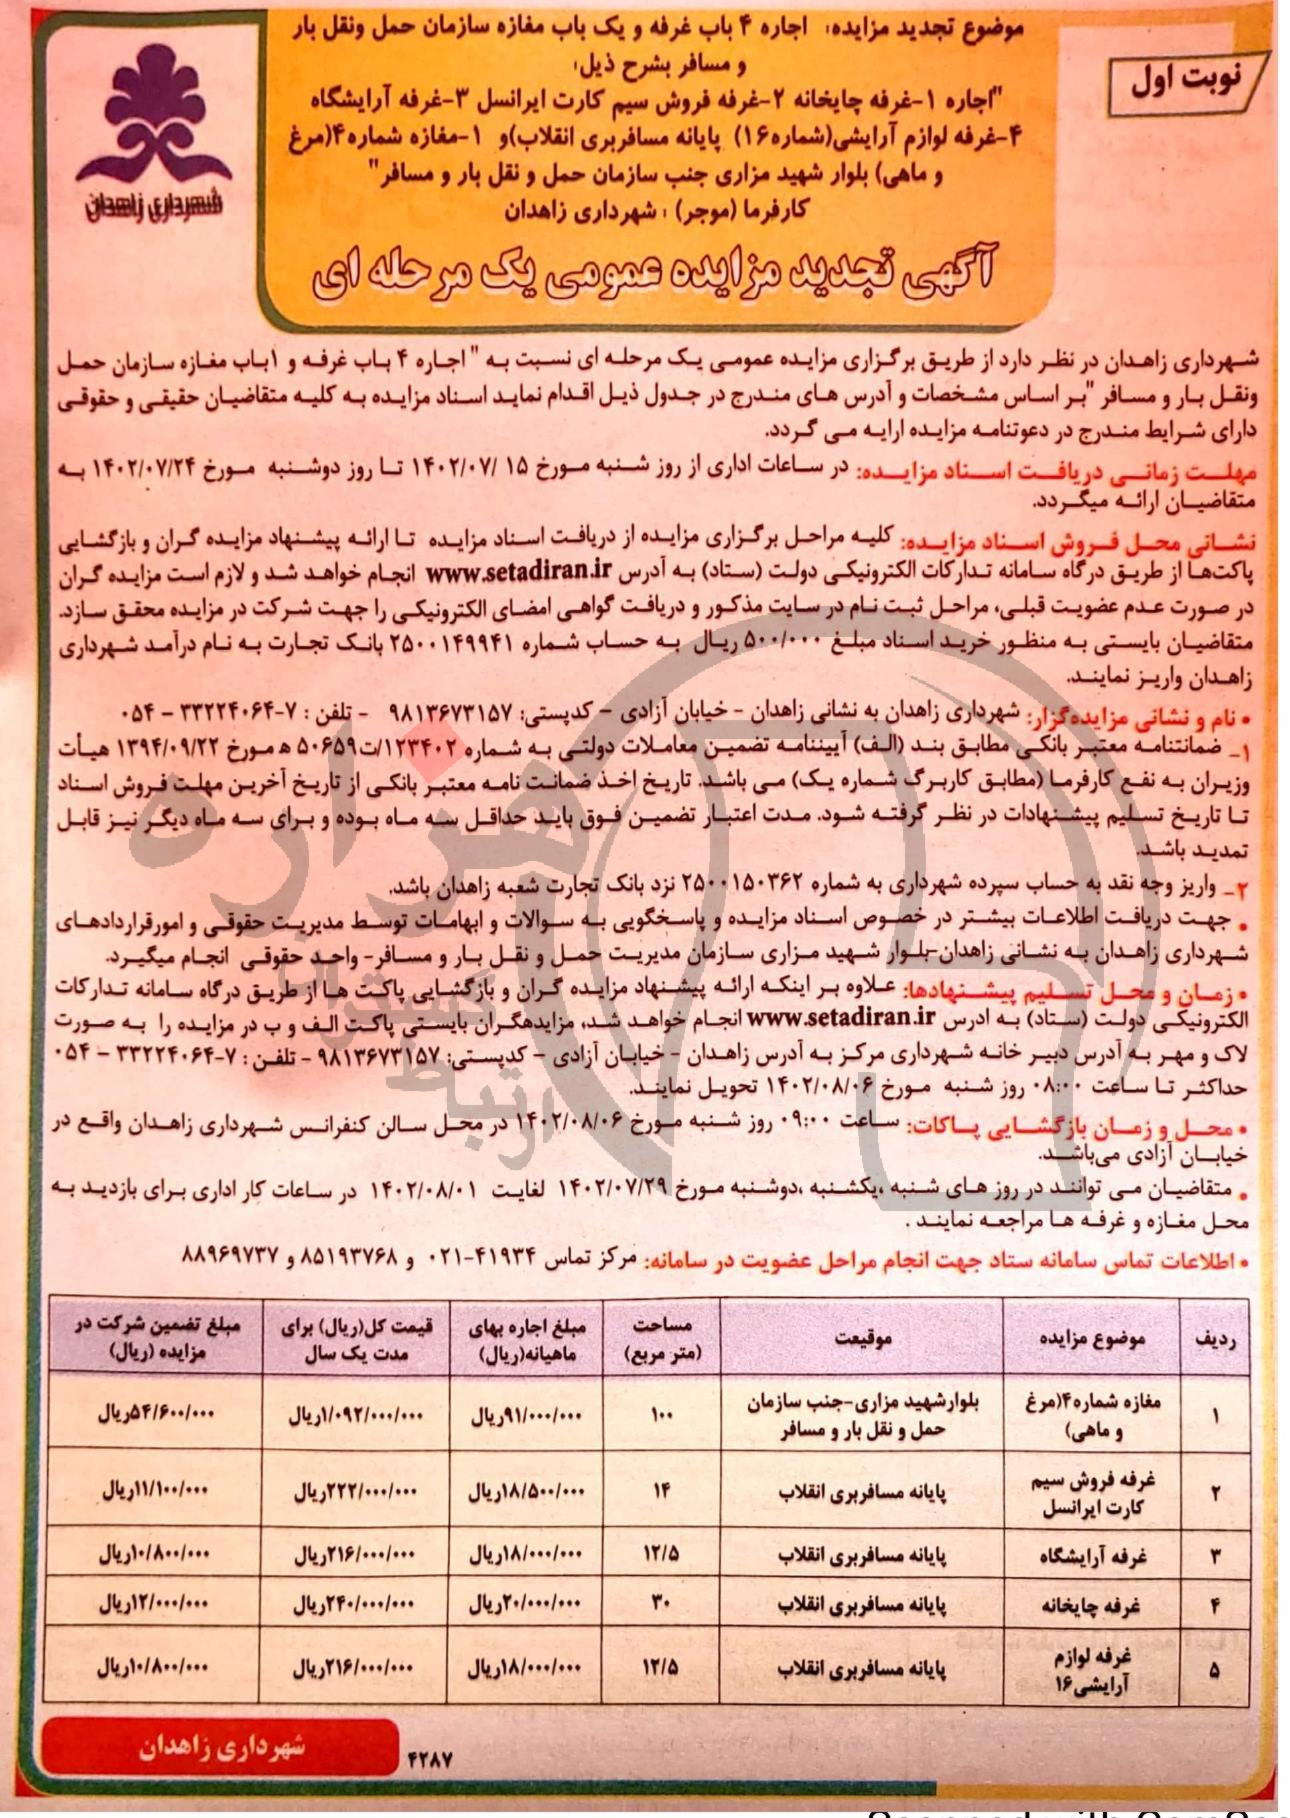 نوبت اول
موضوع تجدید مزایده: اجاره ۴ باب غرفه و یک باب مغازه سازمان حمل ونقل بار
و مسافر بشرح ذیل:
"اجاره ۱-غرفه چایخانه ۲-غرفه فروش سیم کارت ایرانسل ۳-غرفه آرایشگاه
۴-غرفه لوازم آرایشی(شماره۱۶) پایانه مسافربری انقلاب)و ۱-مغازه شماره۴(مرغ
و ماهی) بلوار شهید مزاری جنب سازمان حمل و نقل بار و مسافر"
کارفرما (موجر) : شهرداری زاهدان
آگهی تجدید مزایده عمومی یک مرحله ای
شهرداری زاهدان
شهرداری زاهدان در نظر دارد از طریق برگزاری مزایده عمومی یک مرحله ای نسبت به " اجاره ۴ باب غرفه و ۱باب مغازه سازمان حمل
ونقل بار و مسافر "بر اساس مشخصات و آدرس های مندرج در جدول ذیل اقدام نماید اسناد مزایده به کلیه متقاضیان حقیقی و حقوقی
دارای شرایط مندرج در دعوتنامه مزایده ارایه می گردد.
مهلت زمانی دریافت اسناد مزایده: در ساعات اداری از روز شنبه مورخ ۱۵ /۱۴۰۲/۰۷ تا روز دوشنبه مورخ ۱۴۰۲/۰۷/۲۴ به
متقاضیان ارائه میگردد.
نشانی محل فروش اسناد مزایده: کلیه مراحل برگزاری مزایده از دریافت اسناد مزایده تا ارائه پیشنهاد مزایده گران و بازگشایی
پاکت‌ها از طریق درگاه سامانه تدارکات الکترونیکی دولت (ستاد) به آدرس www.setadiran.ir انجام خواهد شد و لازم است مزایده گران
در صورت عدم عضویت قبلی، مراحل ثبت نام در سایت مذکور و دریافت گواهی امضای الکترونیکی را جهت شرکت در مزایده محقق سازد.
متقاضیان بایستی به منظور خرید اسناد مبلغ ۵۰۰/۰۰۰ ریال به حساب شماره ۲۵۰۰۱۴۹۹۴۱ بانک تجارت به نام درآمد شهرداری
زاهدان واریز نمایند.
• نام و نشانی مزایده‌گزار: شهرداری زاهدان به نشانی زاهدان - خیابان آزادی – کدپستی: ۹۸۱۳۶۷۳۱۵۷ - تلفن : ۷-۳۳۲۲۴۰۶۴ – ۰۵۴
۱_ ضمانتنامه معتبر بانکی مطابق بند (الف) آیین‌نامه تضمین معاملات دولتی به شماره ۱۲۳۴۰۲/ت۵۰۶۵۹ ه مورخ ۱۳۹۴/۰۹/۲۲ هیأت
وزیران به نفع کارفرما (مطابق کاربرگ شماره یک) می باشد. تاریخ اخذ ضمانت نامه معتبر بانکی از تاریخ آخرین مهلت فروش اسناد
تا تاریخ تسلیم پیشنهادات در نظر گرفته شود. مدت اعتبار تضمین فوق باید حداقل سه ماه بوده و برای سه ماه دیگر نیز قابل
تمدید باشد.
۲_ واریز وجه نقد به حساب سپرده شهرداری به شماره ۲۵۰۰۱۵۰۳۶۲ نزد بانک تجارت شعبه زاهدان باشد.
• جهت دریافت اطلاعات بیشتر در خصوص اسناد مزایده و پاسخگویی به سوالات و ابهامات توسط مدیریت حقوقی و امورقراردادهای
شهرداری زاهدان به نشانی زاهدان-بلوار شهید مزاری سازمان مدیریت حمل و نقل بار و مسافر- واحد حقوقی انجام میگیرد.
• زمان و محل تسلیم پیشنهادها: علاوه بر اینکه ارائه پیشنهاد مزایده گران و بازگشایی پاکت ها از طریق درگاه سامانه تدارکات
الکترونیکی دولت (ستاد) به ادرس www.setadiran.ir انجام خواهد شد، مزایدهگران بایستی پاکت الف و ب در مزایده را به صورت
لاک و مهر به آدرس دبیر خانه شهرداری مرکز به آدرس زاهدان - خیابان آزادی – کدپستی: ۹۸۱۳۶۷۳۱۵۷ - تلفن : ۷-۳۳۲۲۴۰۶۴ – ۰۵۴
حداکثر تا ساعت ۰۸:۰۰ روز شنبه مورخ ۱۴۰۲/۰۸/۰۶ تحویل نمایند.
• محل و زمان بازگشایی پاکات: ساعت ۰۹:۰۰ روز شنبه مورخ ۱۴۰۲/۰۸/۰۶ در محل سالن کنفرانس شهرداری زاهدان واقع در
خیابان آزادی می‌باشد.
• متقاضیان می توانند در روز های شنبه ،یکشنبه ،دوشنبه مورخ ۱۴۰۲/۰۷/۲۹ لغایت ۱۴۰۲/۰۸/۰۱ در ساعات کار اداری برای بازدید به
محل مغازه و غرفه ها مراجعه نمایند .
• اطلاعات تماس سامانه ستاد جهت انجام مراحل عضویت در سامانه: مرکز تماس ۴۱۹۳۴-۰۲۱ و ۸۵۱۹۳۷۶۸ و ۸۸۹۶۹۷۳۷
ردیف موضوع مزایده موقیعت مساحت (متر مربع) مبلغ اجاره بهای ماهیانه(ریال) قیمت کل(ریال) برای مدت یک سال مبلغ تضمین شرکت در مزایده (ریال)
۱ مغازه شماره۴(مرغ و ماهی) بلوارشهید مزاری-جنب سازمان حمل و نقل بار و مسافر ۱۰۰ ۹۱/۰۰۰/۰۰۰ریال ۱/۰۹۲/۰۰۰/۰۰۰ریال ۵۴/۶۰۰/۰۰۰ریال
۲ غرفه فروش سیم کارت ایرانسل پایانه مسافربری انقلاب ۱۴ ۱۸/۵۰۰/۰۰۰ریال ۲۲۲/۰۰۰/۰۰۰ریال ۱۱/۱۰۰/۰۰۰ریال
۳ غرفه آرایشگاه پایانه مسافربری انقلاب ۱۲/۵ ۱۸/۰۰۰/۰۰۰ریال ۲۱۶/۰۰۰/۰۰۰ریال ۱۰/۸۰۰/۰۰۰ریال
۴ غرفه چایخانه پایانه مسافربری انقلاب ۳۰ ۲۰/۰۰۰/۰۰۰ریال ۲۴۰/۰۰۰/۰۰۰ریال ۱۲/۰۰۰/۰۰۰ریال
۵ غرفه لوازم آرایشی۱۶ پایانه مسافربری انقلاب ۱۲/۵ ۱۸/۰۰۰/۰۰۰ریال ۲۱۶/۰۰۰/۰۰۰ریال ۱۰/۸۰۰/۰۰۰ریال
شهرداری زاهدان
۴۲۸۷